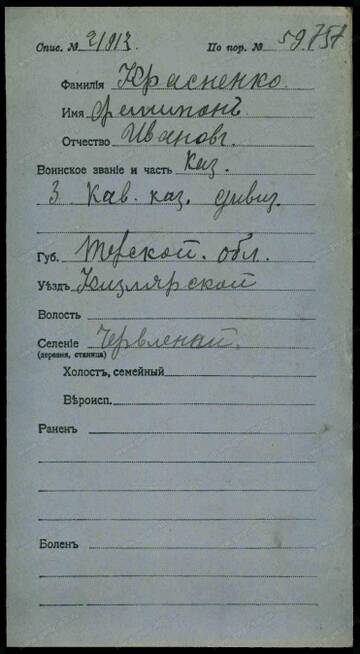 Спис. № 21913 По пор. № 59.757
Фамилія Красненко.
Имя
Отчество Ивановъ
Воинское званіе и часть Каз.
3 Кав. каз. дивиз.
Губ. Терской. обл.
Уѣздъ Кизлярской
Волость
Селеніе Червленай.
(деревня, станица)
Холостъ, семейный
Вѣроисп.
Раненъ
Боленъ